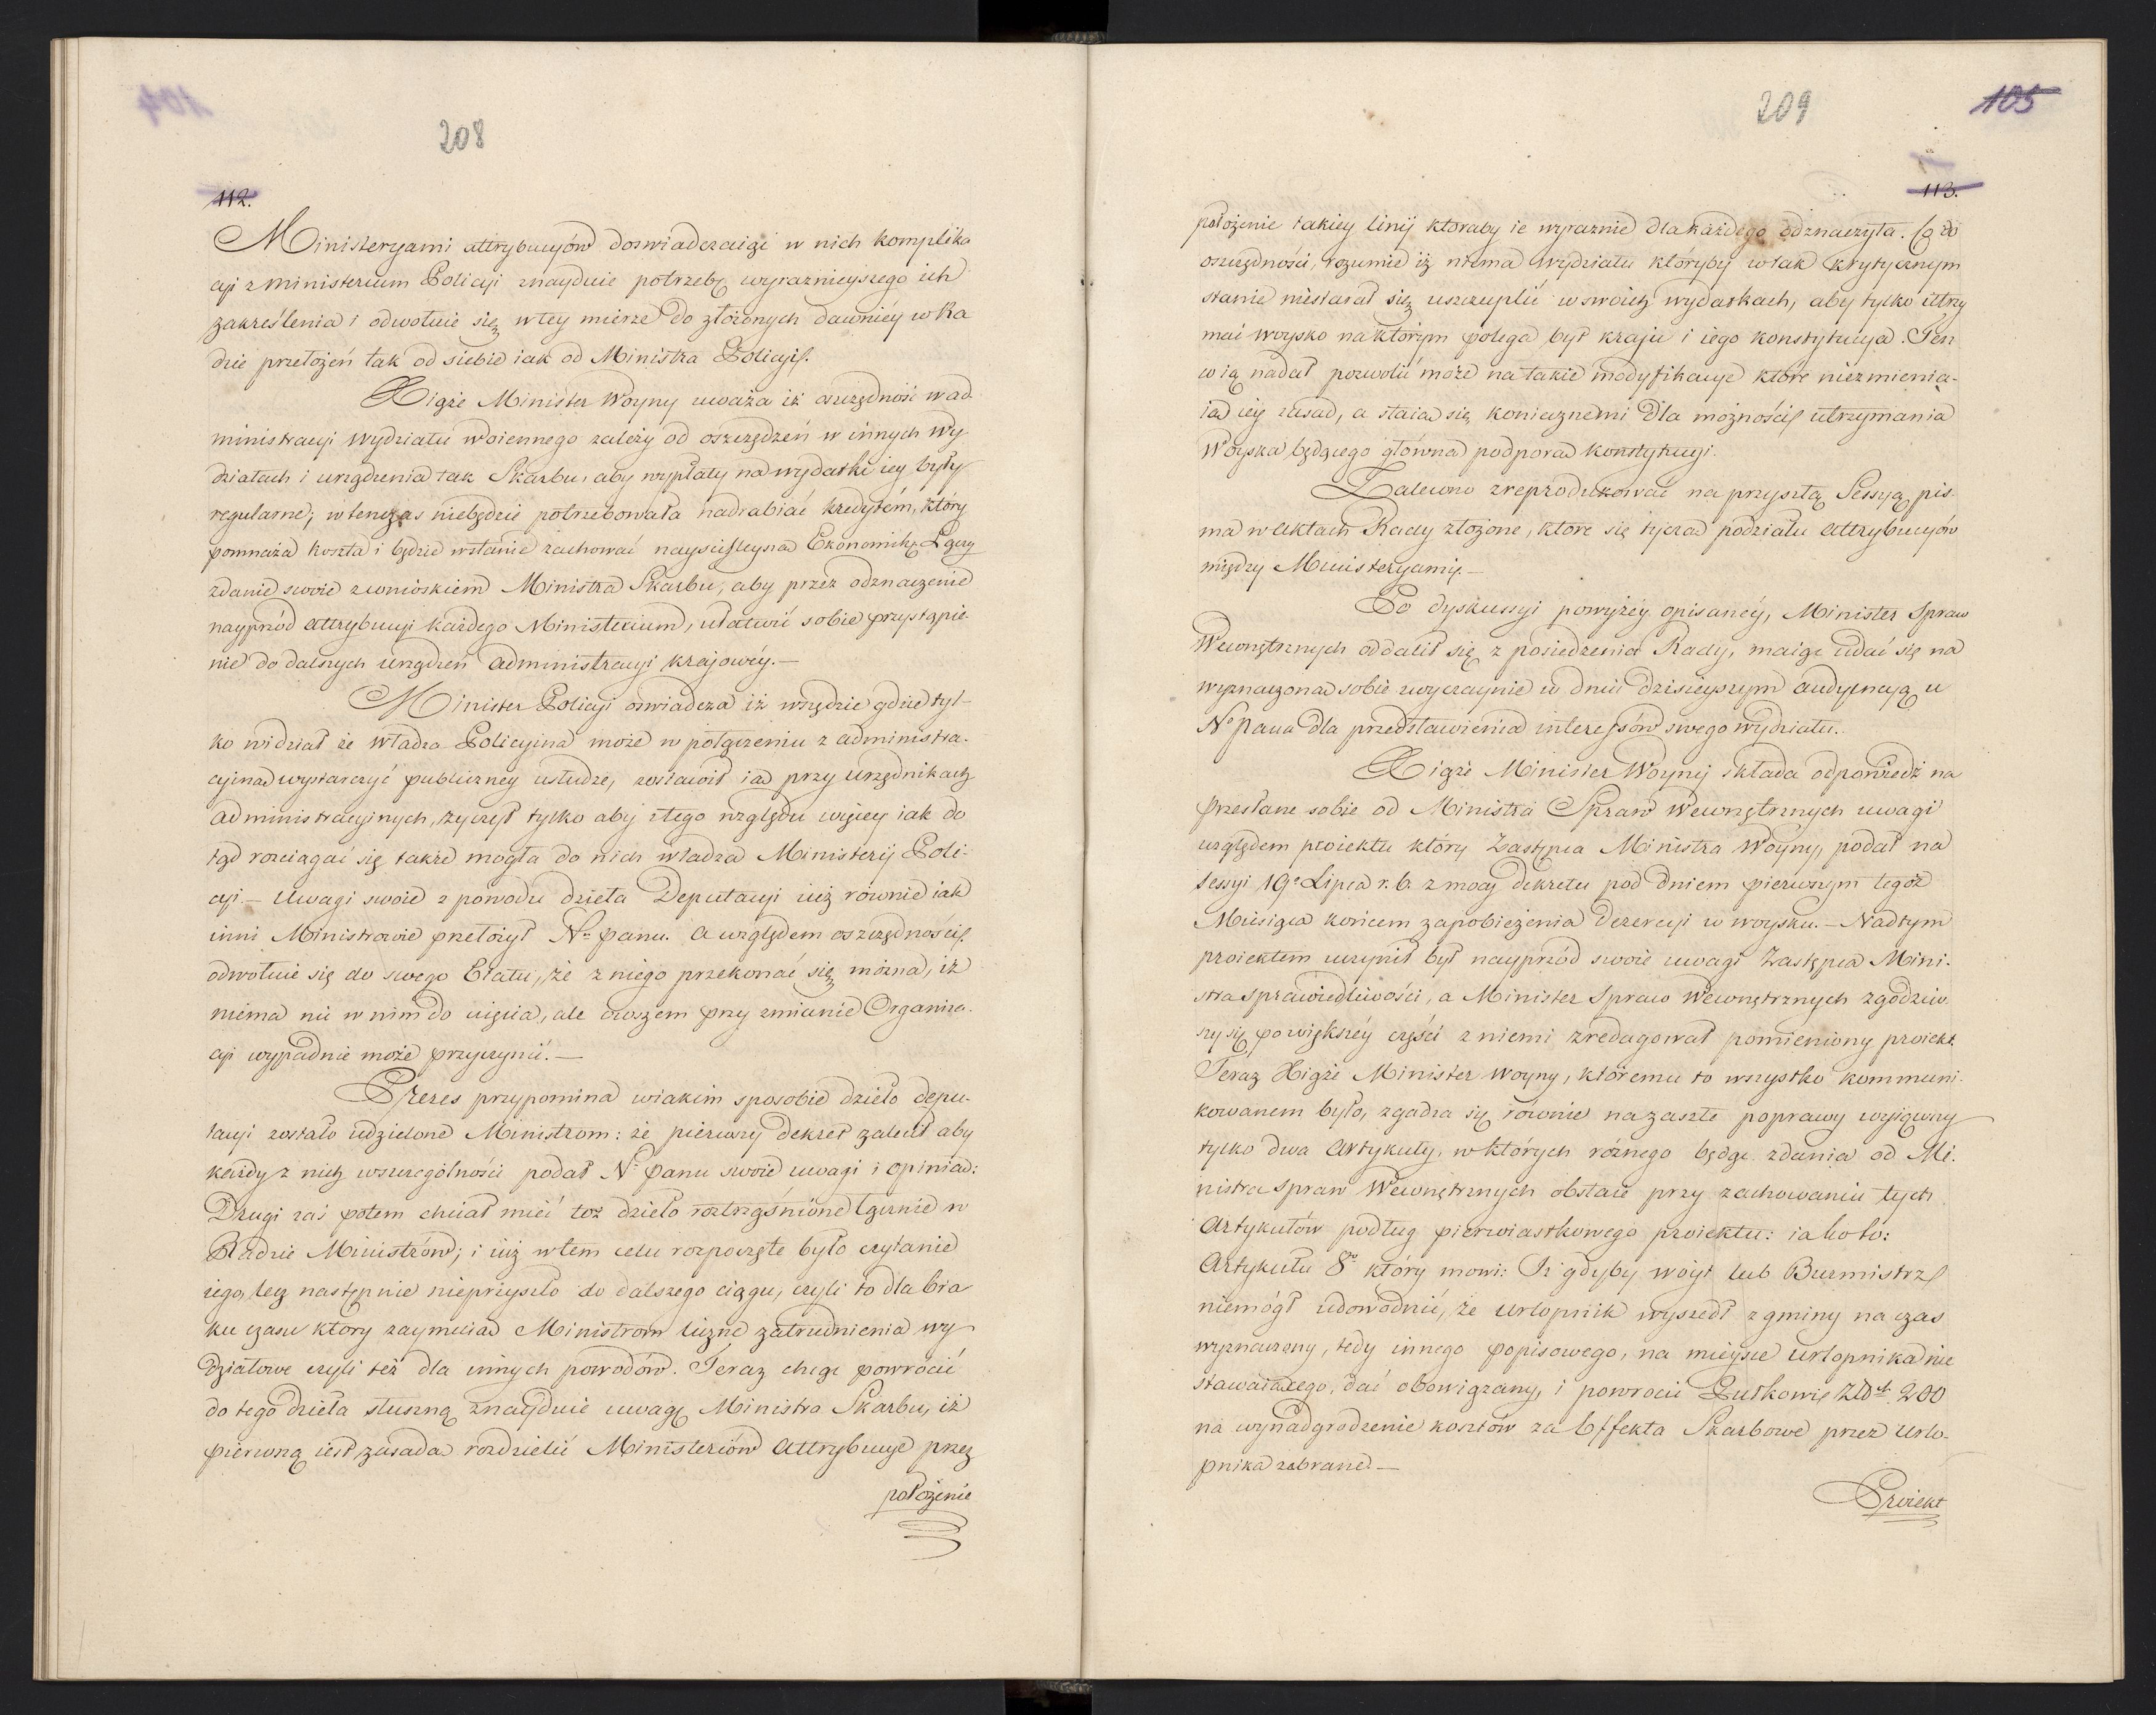 208
112.
Ministeryami attrybucyów doswiadczaiąc w nich komplika
cyi z ministerium Policyi znayduie potrzebę wyraznieyszego ich
zakreślenia i odwołuie się w tey mierze do złożonych dawniéy w Ra
dzie przełożeń tak od siebie iak od Ministra Policyi.
Xiąże Minister Woyny uważa iż oszczędność w ad-
ministracyi wydziału woiennego zależy od oszczędzeń w innych wy
działach i urządzenia tak Skarbu, aby wypłaty na wydatki iey były
regularne; wtenczas niebędzie potrzebowała nadrabiać kredytem, który
pomnaża koszta i będzie wstanie zachować nayściśleyszą Ekonomikę. Łączy
zdanie swoie z wnioskiem Ministra Skarbu, aby przez odznaczenie
nayprzód attrybucyi każdego Ministerium, ułatwić sobie przystąpie-
nie do dalszych urządzeń administracyi krajowéy.—
Minister Policyi oswiadcza iż wszędzie gdzie tyl-
ko widział że władza Policyina może w połączeniu z administra-
cyiną wystarczyć publiczney usłudze, zostawił ią przy urzędnikach
administracyinych, życzył tylko aby z tego względu więcey iak do
tąd rozciągać się także mogła do nich władza Ministeryi Poli-
cyi.— Uwagi swoie z powodu dzieła Deputacyi iuż równie iak
inni Ministrowie przełożył Nu panu. A względem oszczędności
odwołuie się do swego Etatu, że z niego przekonać się można, iż
niema nic w nim do uięcia, ale owszem przy zmianie Organiza-
cyi wypadnie może przyczynić.—
Prezes przypomina wiakim sposobie dzieło depu-
tacyi zostało udzielone Ministrom: że pierwszy dekret zalecił aby
każdy z nich wszczególności podał Nu panu swoie uwagi i opinią:
Drugi zaś potem chciał mieć toż dzieło roztrząśnione łącznie w
Radzie Ministrów; i iuż w tem celu rozpoczęte było czytanie
iego, lecz następnie nieprzyszło do dalszego ciągu, czyli to dla bra
ku czasu który zaymuią Ministrom liczne zatrudnienia wy
działowe czyli też dla innych powodów. Teraz chcąc powrócić
do tego dzieła słuszną znayduie uwagę Ministra Skarbu, iż
pierwszą iest zasadą rozdzielić Ministeriów attrybucye przez
położenie
209
105
113.
położenie takiey linij ktoraby ie wyraznie dla każdego odznaczyła. Co do
oszczędności, rozumie iż niema wydziału któryby wtak krytycznym
stanie niestarał się uszczuplić w swoich wydatkach, aby tylko utrzy
mać woysko na którym polega byt kraju i iego konstytucya. Ten
co ią nadał pozwolić może na takie modyfikacye które niezmienia-
ią iéy zasad, a staią się koniecznemi dla możności utrzymania
Woyska będącego główną podporą konstytucyi.
Zalecono zreprodukować na przyszłą Sessyą pis-
ma w aktach Rady złożone, ktore się tyczą podziału attrybucyów
między Ministeryami.—
Po dyskussyi powyżéy opisanéy, Minister Spraw
Wewnętrznych oddalił się z posiedzenia Rady, maiąc udać się na
wyznaczoną sobie zwyczaynie w dniu dzisieyszym audyencyą u
No pana dla przedstawienia interessów swego wydziału.
Xiąże Minister Woyny składa odpowiedź na
przesłane sobie od Ministra Spraw Wewnętrznych uwagi
względem proiektu który Zastępca Ministra Woyny, podał na
Sessyi 19o Lipca r. b. z mocy dekretu pod dniem pierwszym tegoż
Miesiąca końcem zapobieżenia dezercyi w woysku.— Nad tym
proiektem uczynił był nayprzód swoie uwagi Zastępca Mini-
stra sprawiedliwości, a Minister Spraw Wewnętrznych zgodziw-
szy się po większéy części z niemi zredagował pomieniony proiekt.
Teraz Xiąże Minister Woyny, któremu to wszystko kommuni-
kowanem było, zgadza się równie na zaszłe poprawy wyiąwszy
tylko dwa Artykuły, w których róznego będąc zdania od Mi-
nistra Spraw Wewnętrznych obstaie przy zachowaniu tych
Artykułów podług pierwiastkowego proiektu: iako to:
Artykułu 8o który mowi: Iż gdyby woyt lub Burmistrz
niemógł udowodnić, że urlopnik wyszedł z gminy na czas
wyznaczony, tedy innego popisowego, na mieysce urlopnika nie
stawaiącego, dać obowiązany, i powrocić Pułkowi Złot. 200
na wynadgrodzenie kosztów za Effekta Skarbowe przez urlo-
pnika zabrane.—
Proiekt